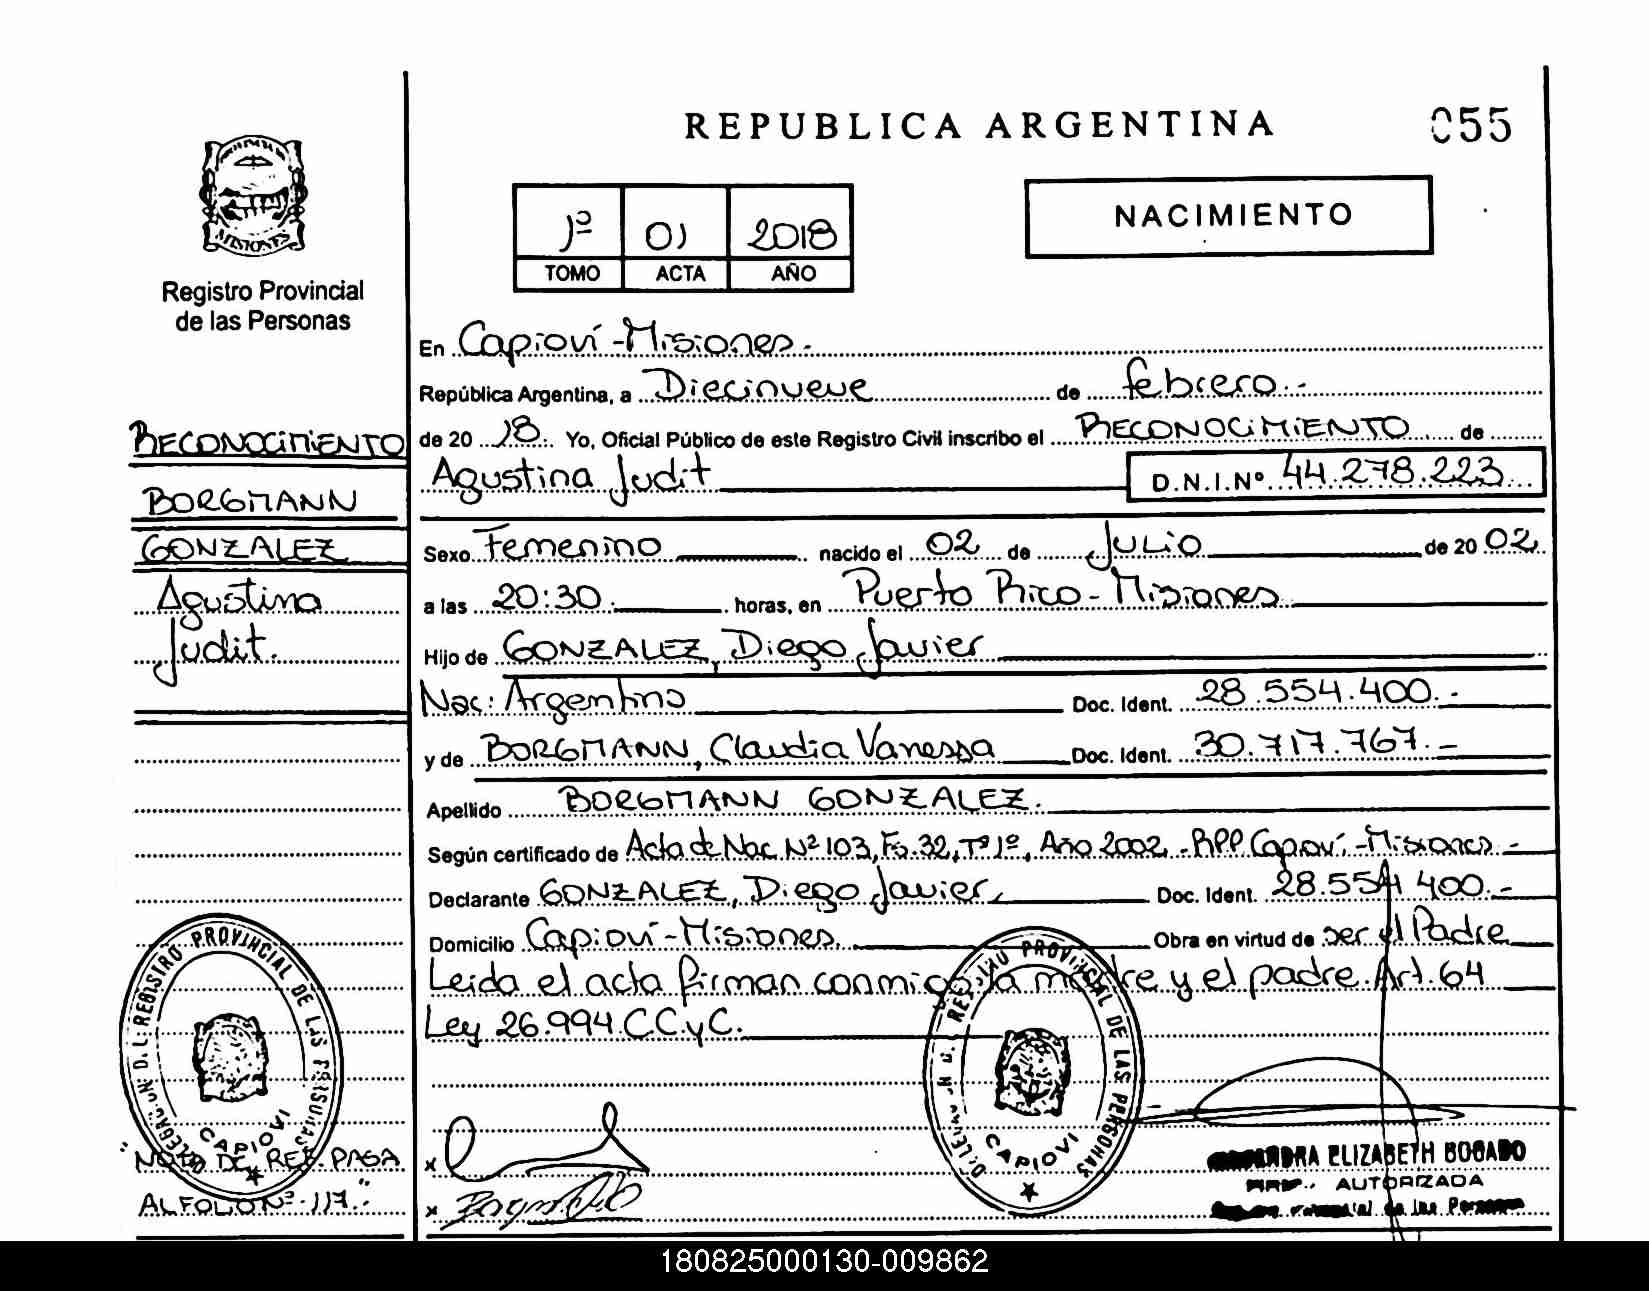 REPUBLICA ARGENTINA
055
MISIONES
Registro Provincial
de las Personas
1º 01 2018
TOMO ACTA AÑO
NACIMIENTO
RECONOCIMIENTO
BORGMANN
GONZALEZ
Agustina
Judit.
En Capioví-Misiones.
República Argentina, a Diecinueve de febrero.-
de 20 18. Yo, Oficial Público de este Registro Civil inscribo el RECONOCIMIENTO de
Agustina Judit D.N.I.Nº 44.278.223
Sexo Femenino nacido el 02 de JULIO de 20 02
a las 20:30. horas, en Puerto Rico-Misiones
Hijo de GONZALEZ, Diego Javier
Nac: Argentino Doc. Ident. 28.554.400.-
y de BORGMANN, Claudia Vanessa Doc. Ident. 30.717.767.-
Apellido BORGMANN GONZALEZ.
Según certificado de Acta de Nac. Nº 103, Fo.32, Tº 1º, Año 2002.-RPP. Capioví-Misiones.-
Declarante GONZALEZ, Diego Javier, Doc. Ident. 28.554.400.-
Domicilio Capioví-Misiones. Obra en virtud de ser el Padre
Leida el acta firman conmigo, la madre y el padre. Art. 64
Ley 26.994 C.C.yC.
REGISTRO PROVINCIAL DE LAS PERSONAS
CAPIOVI
PROVINCIAL DE LAS PERSONAS
CAPIOVI
"NOTA DE REF. PASA
AL FOLIO Nº 117."
ELIZABETH BOGADO
AUTORIZADA
de las Personas
180825000130-009862